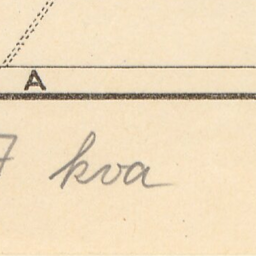 A
7 kva